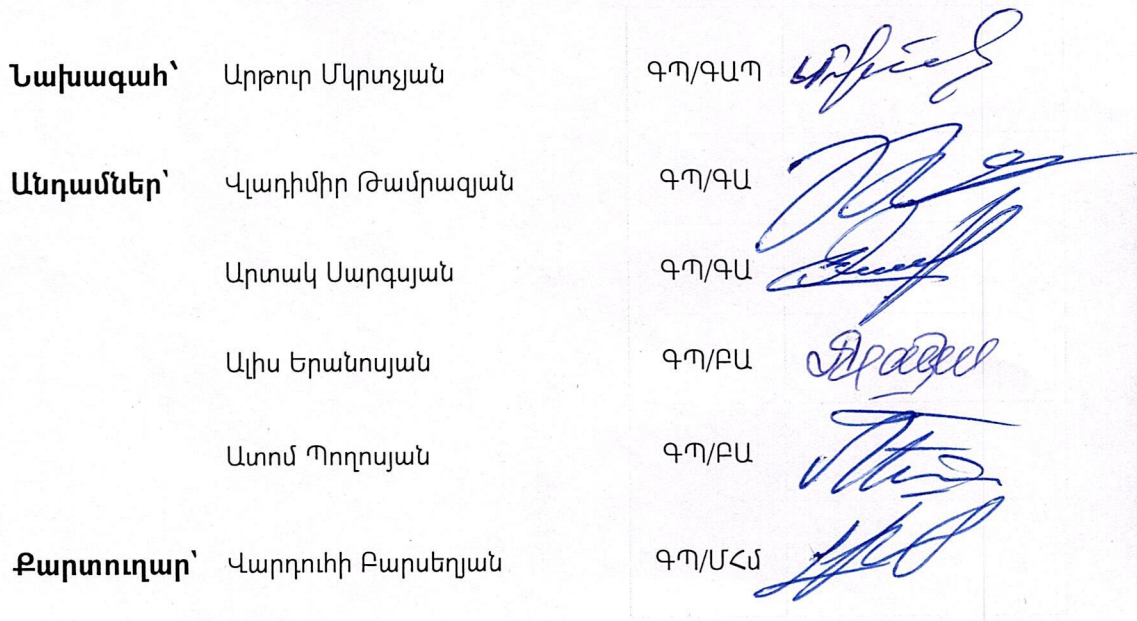 Նախագահ՝ Արթուր Մկրտչյան ԳՊ/ԳԱՊ
Անդամներ՝ Վլադիմիր Թամրազյան ԳՊ/ԳԱ
Արտակ Սարգսյան ԳՊ/ԳԱ
Ալիս Երանոսյան ԳՊ/ԲԱ
Ատոմ Պողոսյան ԳՊ/ԲԱ
Քարտուղար՝ Վարդուհի Բարսեղյան ԳՊ/ՄՀմ